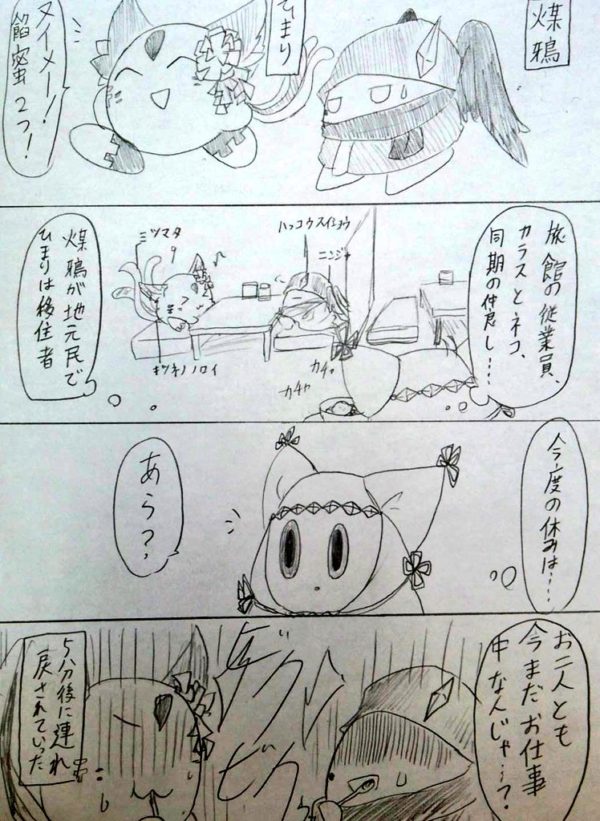 煤鴉
ひまり
ヌイメー！
餡蜜２つ！
旅館の従業員、
カラスとネコ、
同期の仲良し…
ハッコウスイショウ
ニンジャ
ミツマタ
キツネノノロイ
カチャ
カチャ
煤鴉が地元民で
ひまりは移住者
今度の休みは…
あら？
お二人とも
今まだお仕事
中なんじゃ…？
ギクッ
ビクッ
５分後に連れ
戻されていた